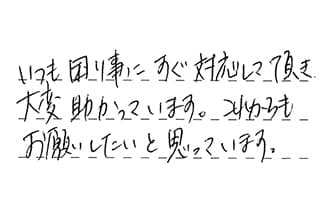 いつも困り事にすぐ対応して頂き
大変助かっています。これからも
お願いしたいと思っています。